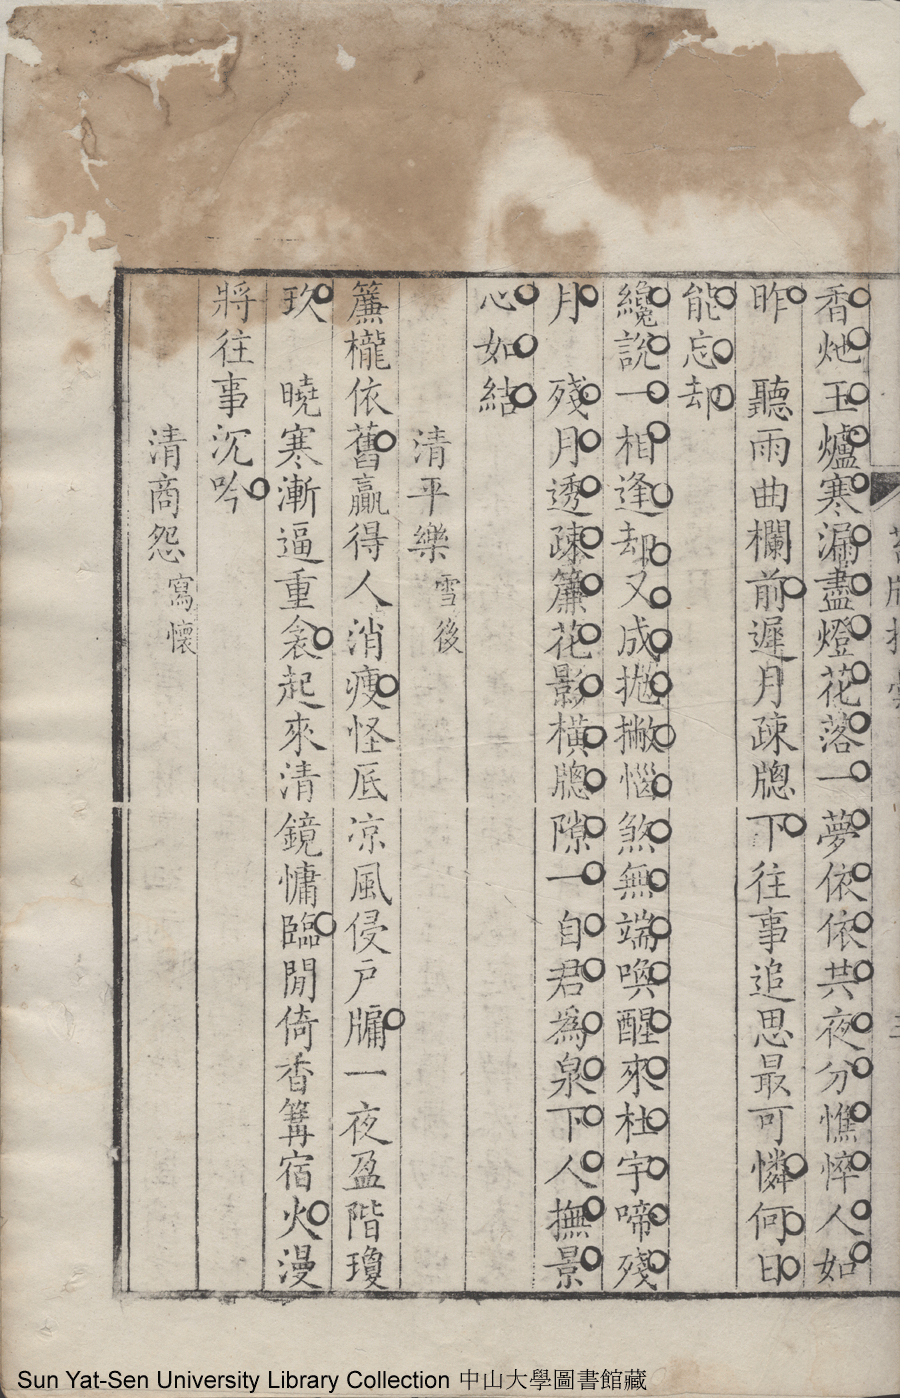 香灺玉爐寒漏盡燈花落一夢依依共夜分憔悴人如
昨　聽雨曲欄前遲月疎牕下往事追思最可憐何日
能忘却
纔説一相逢却又成拋撇惱煞無端喚醒來杜宇啼殘
月　殘月透疎簾花影橫牕隙一自君為泉下人撫景
心如結
清平樂 雪後
簾櫳依舊贏得人消瘦怪底凉風侵戸牖一夜盈階瓊
玖　曉寒漸逼重衾起來清鏡慵臨閒倚香篝宿火漫
將往事沉吟
清商怨 寫懷
Sun Yat-Sen University Library Collection 中山大學圖書館藏